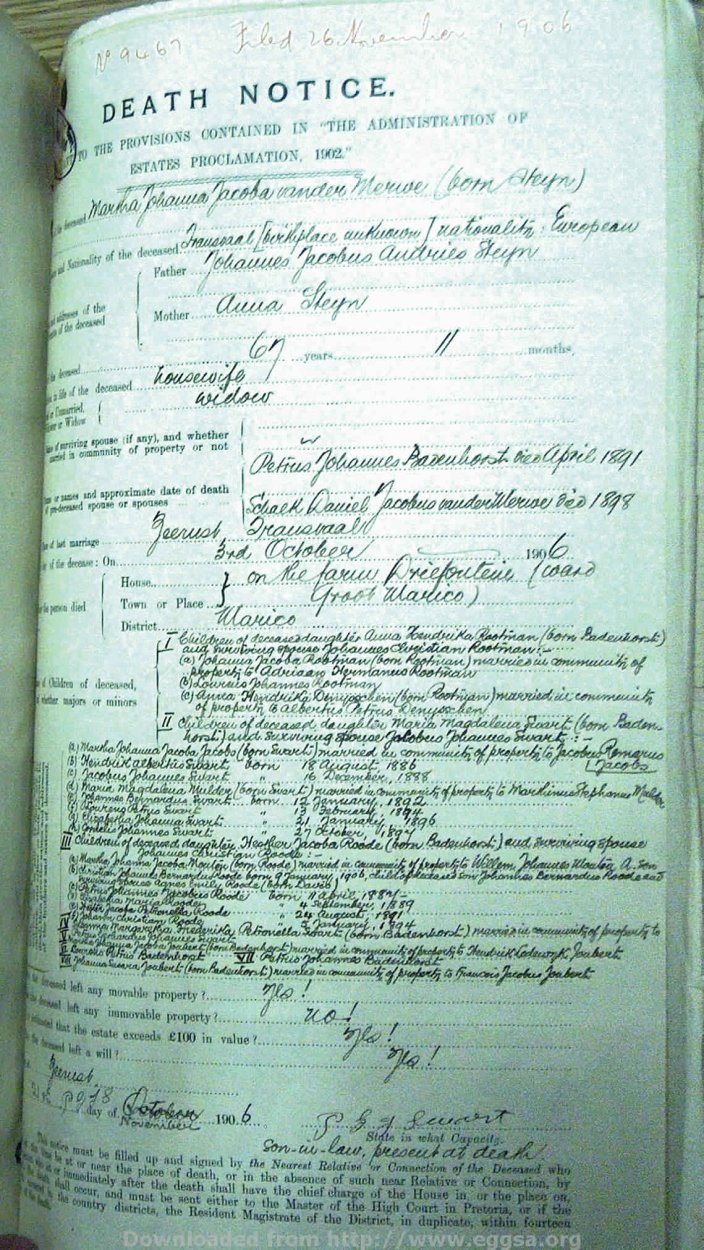 No 9467 Filed 26 November 1906
DEATH NOTICE.
TO THE PROVISIONS CONTAINED IN "THE ADMINISTRATION OF
ESTATES PROCLAMATION, 1902."
the deceased Martha Johanna Jacoba van der Merwe (born Steyn)
and Nationality of the deceased Transvaal [birthplace unknown] nationality: European
Father Johannes Jacobus Andries Steyn
addresses of the
of the deceased
Mother Anna Steyn
the deceased 67 years 11 months,
in life of the deceased housewife
or Unmarried,
or Widow widow
of surviving spouse (if any), and whether
married in community of property or not
Petrus Johannes Badenhorst died April 1891
or names and approximate date of death
of pre-deceased spouse or spouses Schalk Daniel Jacobus van der Merwe died 1898
of last marriage Zeerust Transvaal
of the decease: On 3rd October 1906
House on the farm Driefontein (ward
the person died Town or Place Groot Marico)
District Marico
I Children of deceased daughter Anna Hendrika Rootman (born Badenhorst)
and surviving spouse Johannes Christian Rootman:-
(a) Johanna Jacoba Rootman (born Rootman) married in community of
property to Adriaan Hermanus Rootman
of Children of deceased, (b) Lourens Johannes Rootman
whether majors or minors (c) Anna Hendrika Denysschen (born Rootman) married in community
of property to Albertus Petrus Denysschen
II Children of deceased daughter Maria Magdalena Swart (born Baden-
horst) and surviving spouse Jacobus Johannes Swart:-
(a) Martha Johanna Jacoba Jacobs (born Swart) married in community of property to Jacobus
Jacobs
(b) Hendrik Albertus Swart born 18 August 1886
(c) Jacobus Johannes Swart " 16 December, 1888
(d) Maria Magdalena Mulder (born Swart) married in community of property to Marthinus Stephanus Mulder
(e) Johannes Bernardus Swart born 12 January, 1892
(f) Lourens Petrus Swart " 13 February, 1894
(g) Elizabetha Johanna Swart " 21 January 1896
(h) Cornelis Johannes Swart " 27 October, 1897
III Children of deceased daughter Heather Jacoba Roode (born Badenhorst) and surviving spouse
Johannes Christian Roode:-
(a) Martha Johanna Jacoba Mouton (born Roode) married in community of property to Willem Johannes Mouton
Christian Johannes Bernardus Roode born 9 January, 1906, child of deceased son Johannes Bernardus Roode and
surviving spouse Agnes Emily Roode (born Davis)
Petrus Johannes Jacobus Roode born 11 April, 1887
Maria Roode " 4 September, 1889
Hester Jacoba Petronella Roode " 24 August, 1891
Johann Christian Roode " January, 1894
IV Margaretha Frederika Petronella Swart (born Badenhorst) married in community of property to
Johannes Swart
V Martha Johanna Jacoba Joubert (born Badenhorst) married in community of property to Hendrik Lodewyk Joubert
VI Petrus Badenhorst VII Petrus Johannes Badenhorst
VIII Johanna Susara Joubert (born Badenhorst) married in community of property to Francois Jacobus Joubert
deceased left any movable property? Yes!
deceased left any immovable property? no!
estimated that the estate exceeds £100 in value? Yes!
the deceased left a will? Yes!
Zeerust
day of October 1906
November
Swart
State in what Capacity.
Son-in-law, present at death
This notice must be filled up and signed by the Nearest Relative or Connection of the Deceased who
be at or near the place of death, or in the absence of such near Relative or Connection, by
or immediately after the death shall have the chief charge of the House in, or the place on,
shall occur, and must be sent either to the Master of the High Court in Pretoria, or if the
the country districts, the Resident Magistrate of the District, in duplicate, within fourteen
Downloaded from http://www.eggsa.org